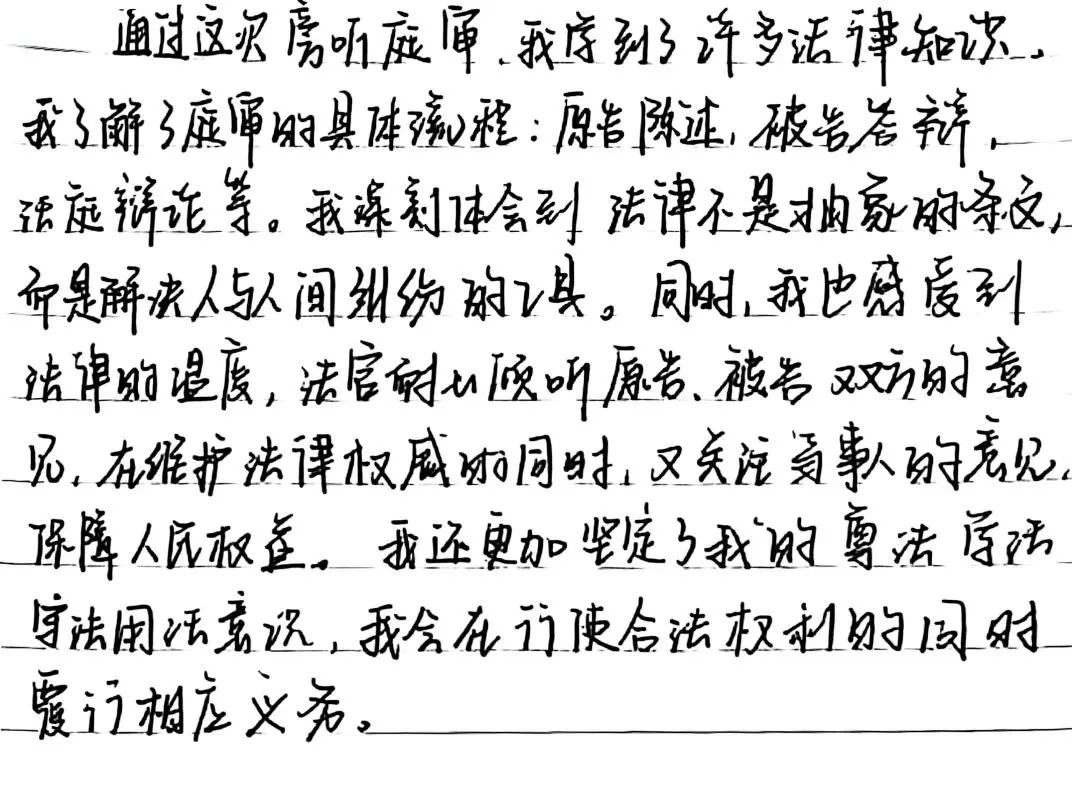 通过这次旁听庭审,我学到了许多法律知识。
我了解了庭审的具体流程:原告陈述,被告答辩,
法庭辩论等。我深刻体会到法律不是抽象的条文,
而是解决人与人间纠纷的工具。同时,我也感受到
法律的温度,法官耐心倾听原告、被告双方的意
见,在维护法律权威的同时,又关注当事人的意见,
保障人民权益。我还更加坚定了我的尊法学法
守法用法意识,我会在行使合法权利的同时
履行相应义务。